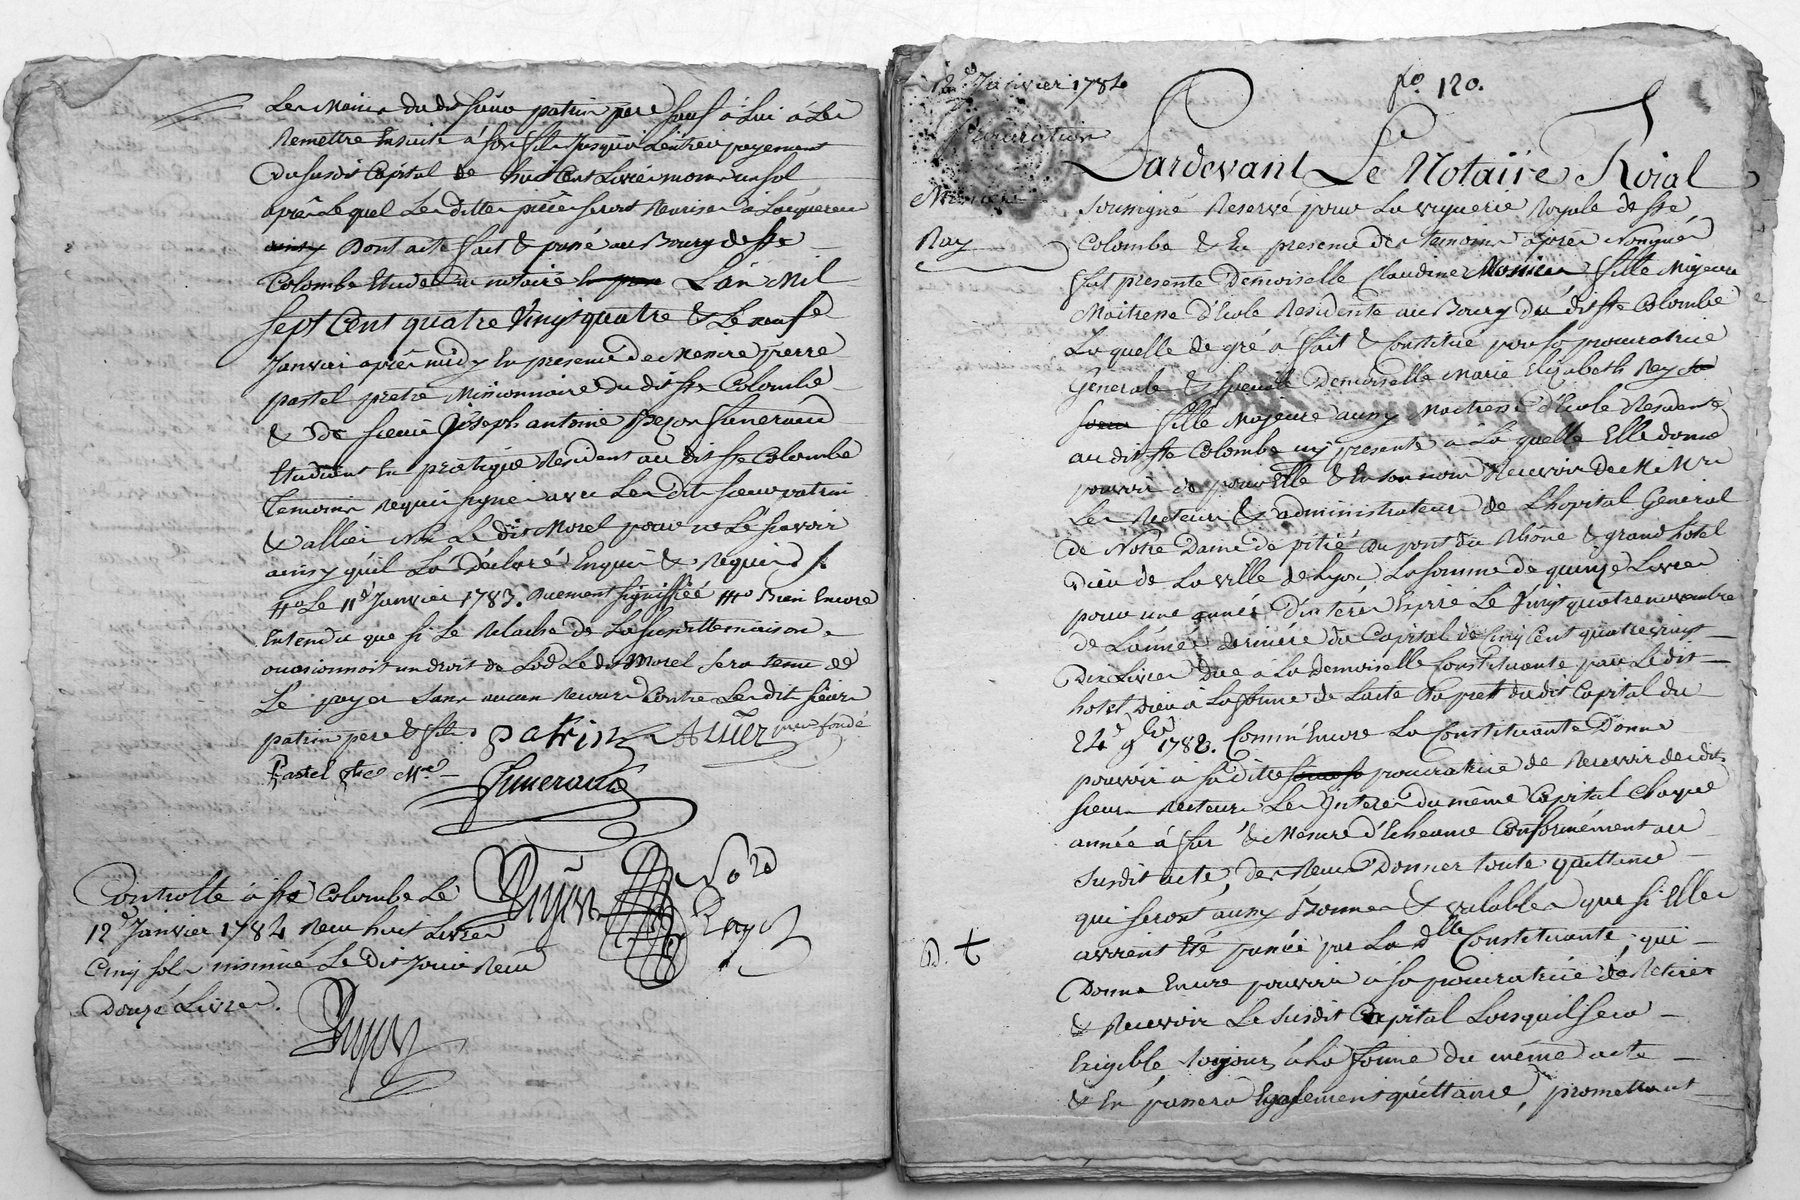 Les Mains du dit sieur patrin pere sauf à Lui à Les
Remettre Ensuite à son fils Jusqu'à L'entier payement
Du susdit Capital de huit Cent Livres moins un sol
après Lequel Les dittes pièces seront Remises à L'acquereur
ainsy Dont acte fait & passé au Bourg de Ste
Colombe Etude du notaire L'an Mil
Sept Cent quatre Vingt quatre & Le neufe
Janvier après midy En presence de Messire pierre
pastel pretre Missionnaire du dit Ste Colombe
& de sieur Joseph antoine Simeraud
Etudiant En pratique Resident au dit Ste Colombe
Temoins requis signes avec Les dits sieurs patrin
& allier non Le dit Morel pour ne Le sçavoir
ainsy qu'il La Déclaré Enquis & Requis
Le 11e Janvier 1783. Bien Encore
Entendu que si Le Relache de La susditte maison
ocasionnoit un droit de Lod Le dit Morel sera tenu de
Le payer sans aucun recours Contre Les dits sieurs
patrin pere & fils. patrin Allier
Pastel ptre Mre
Simeraud
Controllé à Ste Colombe Le
12e Janvier 1784 Reçu huit Livres
Cinq sols insinué Le dit Jour Reçu
Douze Livres.
12e Janvier 1784
fo. 120.
Procuration
Monier
Ray
Pardevant Le Notaire Roial
soussigné Reservé pour La viguerie Royale de Ste
Colombe & En presence des temoins après Nommés
fut presente Demoiselle Claudine Monier fille Majeure
Maitresse d'Ecole Residente au Bourg du dit Ste Colombe
Laquelle de gré à fait & Constitué pour sa procuratrice
Generale & speciale Demoiselle Marie Elizabeth Rey sa
soeur fille Majeure aussy Maitresse d'Ecole Residente
au dit Ste Colombe icy presente à La quelle Elle donne
pouvoir de pour Elle & En son nom Recevoir de M. Mrs
Les Recteurs & administrateurs de L'hopital General
de Notre Dame de pitié du pont du Rhône & grand hotel
Dieu de La ville de Lyon, La somme de quinze Livres
pour une année D'interêt Expiré Le Vingt quatre novembre
de L'année derniére du Capital de Cinq Cent quatre vingt
Dix Livres Due à La demoiselle Constituante par Le dit
hotel Dieu à La forme de L'acte du dit Capital du
24e 9bre 1782. Comm'Encore La Constituante Donne
pouvoir à sa ditte procuratrice de Recevoir des dits
sieurs Recteurs Les Interets du même Capital Chaque
année à fur & Mesure d'Echeance Conformément au
susdit acte, des Reçus Donner toute quittance
qui seront aussy Bonnes & valables que si Elles
avoient Eté passées par La dlle Constituante, qui
Donne Encore pouvoir à sa procuratrice de Retirer
& Recevoir Le susdit Capital Lorsquil sera
Exigible toujours à La forme du même acte
& En passera Egalement quittance, promettant